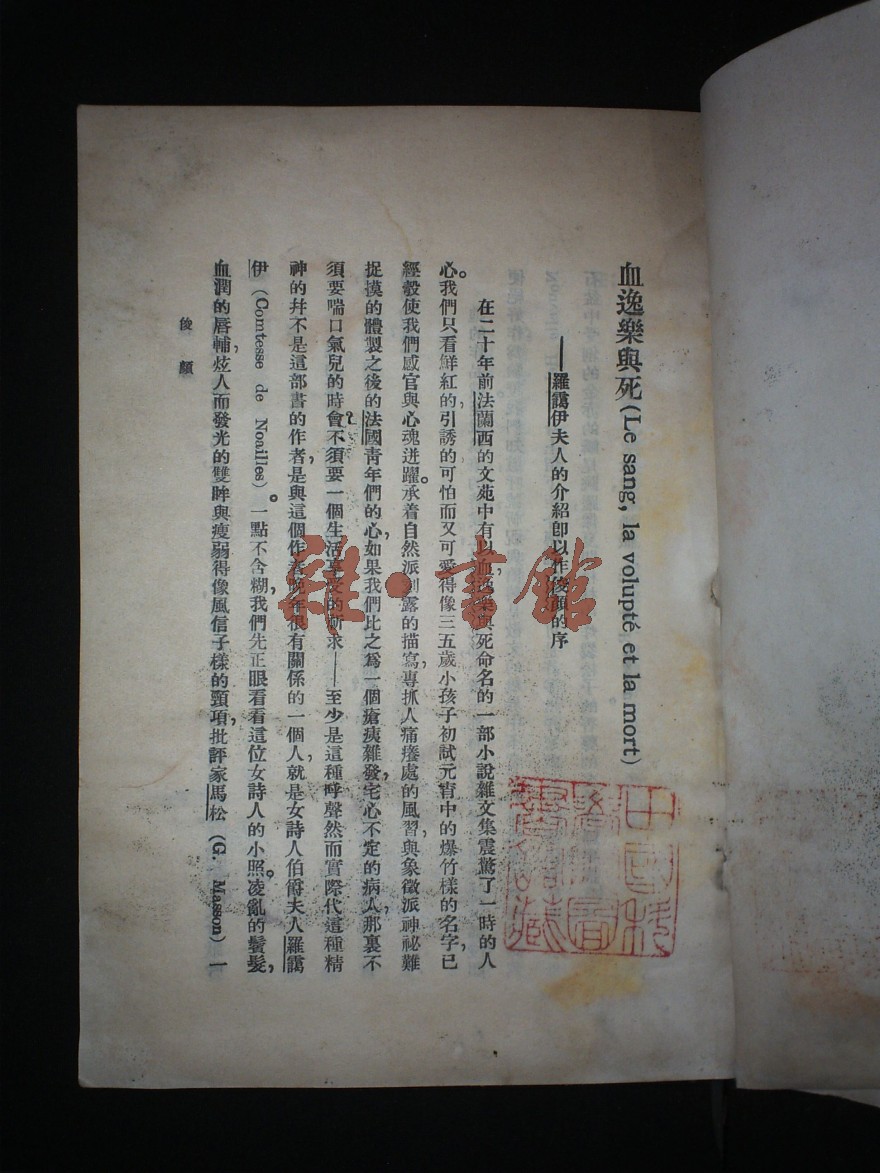 血逸樂與死(Le sang, la volupté et la mort)
——羅靄伊夫人的介紹卽以作俊顏的序
在二十年前法蘭西的文苑中有以血逸樂與死命名的一部小說雜文集震驚了一時的人
心。我們只看鮮紅的引誘的可怕而又可愛得像三五歲小孩子初試元宵中的爆竹樣的名字，已
經彀使我們感官與心魂迸躍。承着自然派刻露的描寫，專抓人痛癢處的風習，與象徵派神祕難
捉摸的體製之後的法國青年們的心，如果我們比之爲一個瘡痍雜發，宅心不定的病人，那裏不
須要喘口氣兒的時會？不須要一個生活享受的祈求——至少是這種呼聲然而實際代這種精
神的幷不是這部書的作者，是與這個作者晚年很有關係的一個人，就是女詩人伯爵夫人羅靄
伊（Comtesse de Noailles）。一點不含糊，我們先正眼看看這位女詩人的小照。凌亂的鬢髮，
血潤的唇輔，炫人而發光的雙眸與瘦弱得像風信子樣的頸項，批評家馬松（G. Masson）
俊顏
一
雜·書館